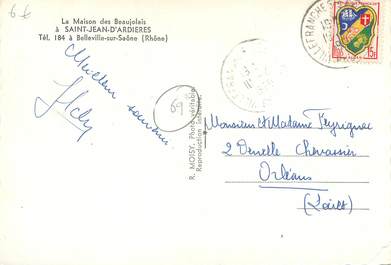 6€
La Maison des Beaujolais
à SAINT-JEAN-D'ARDIERES
Tél. 184 à Belleville-sur-Saône (Rhône)
Meilleur souvenir
69
R. MOISY, Photo véritable
Reproduction interdite.
VILLEFRANCHE S
15F
Monsieur et Madame Peyrignac
2 Venelle Chevassier
Orléans
(Loiret)